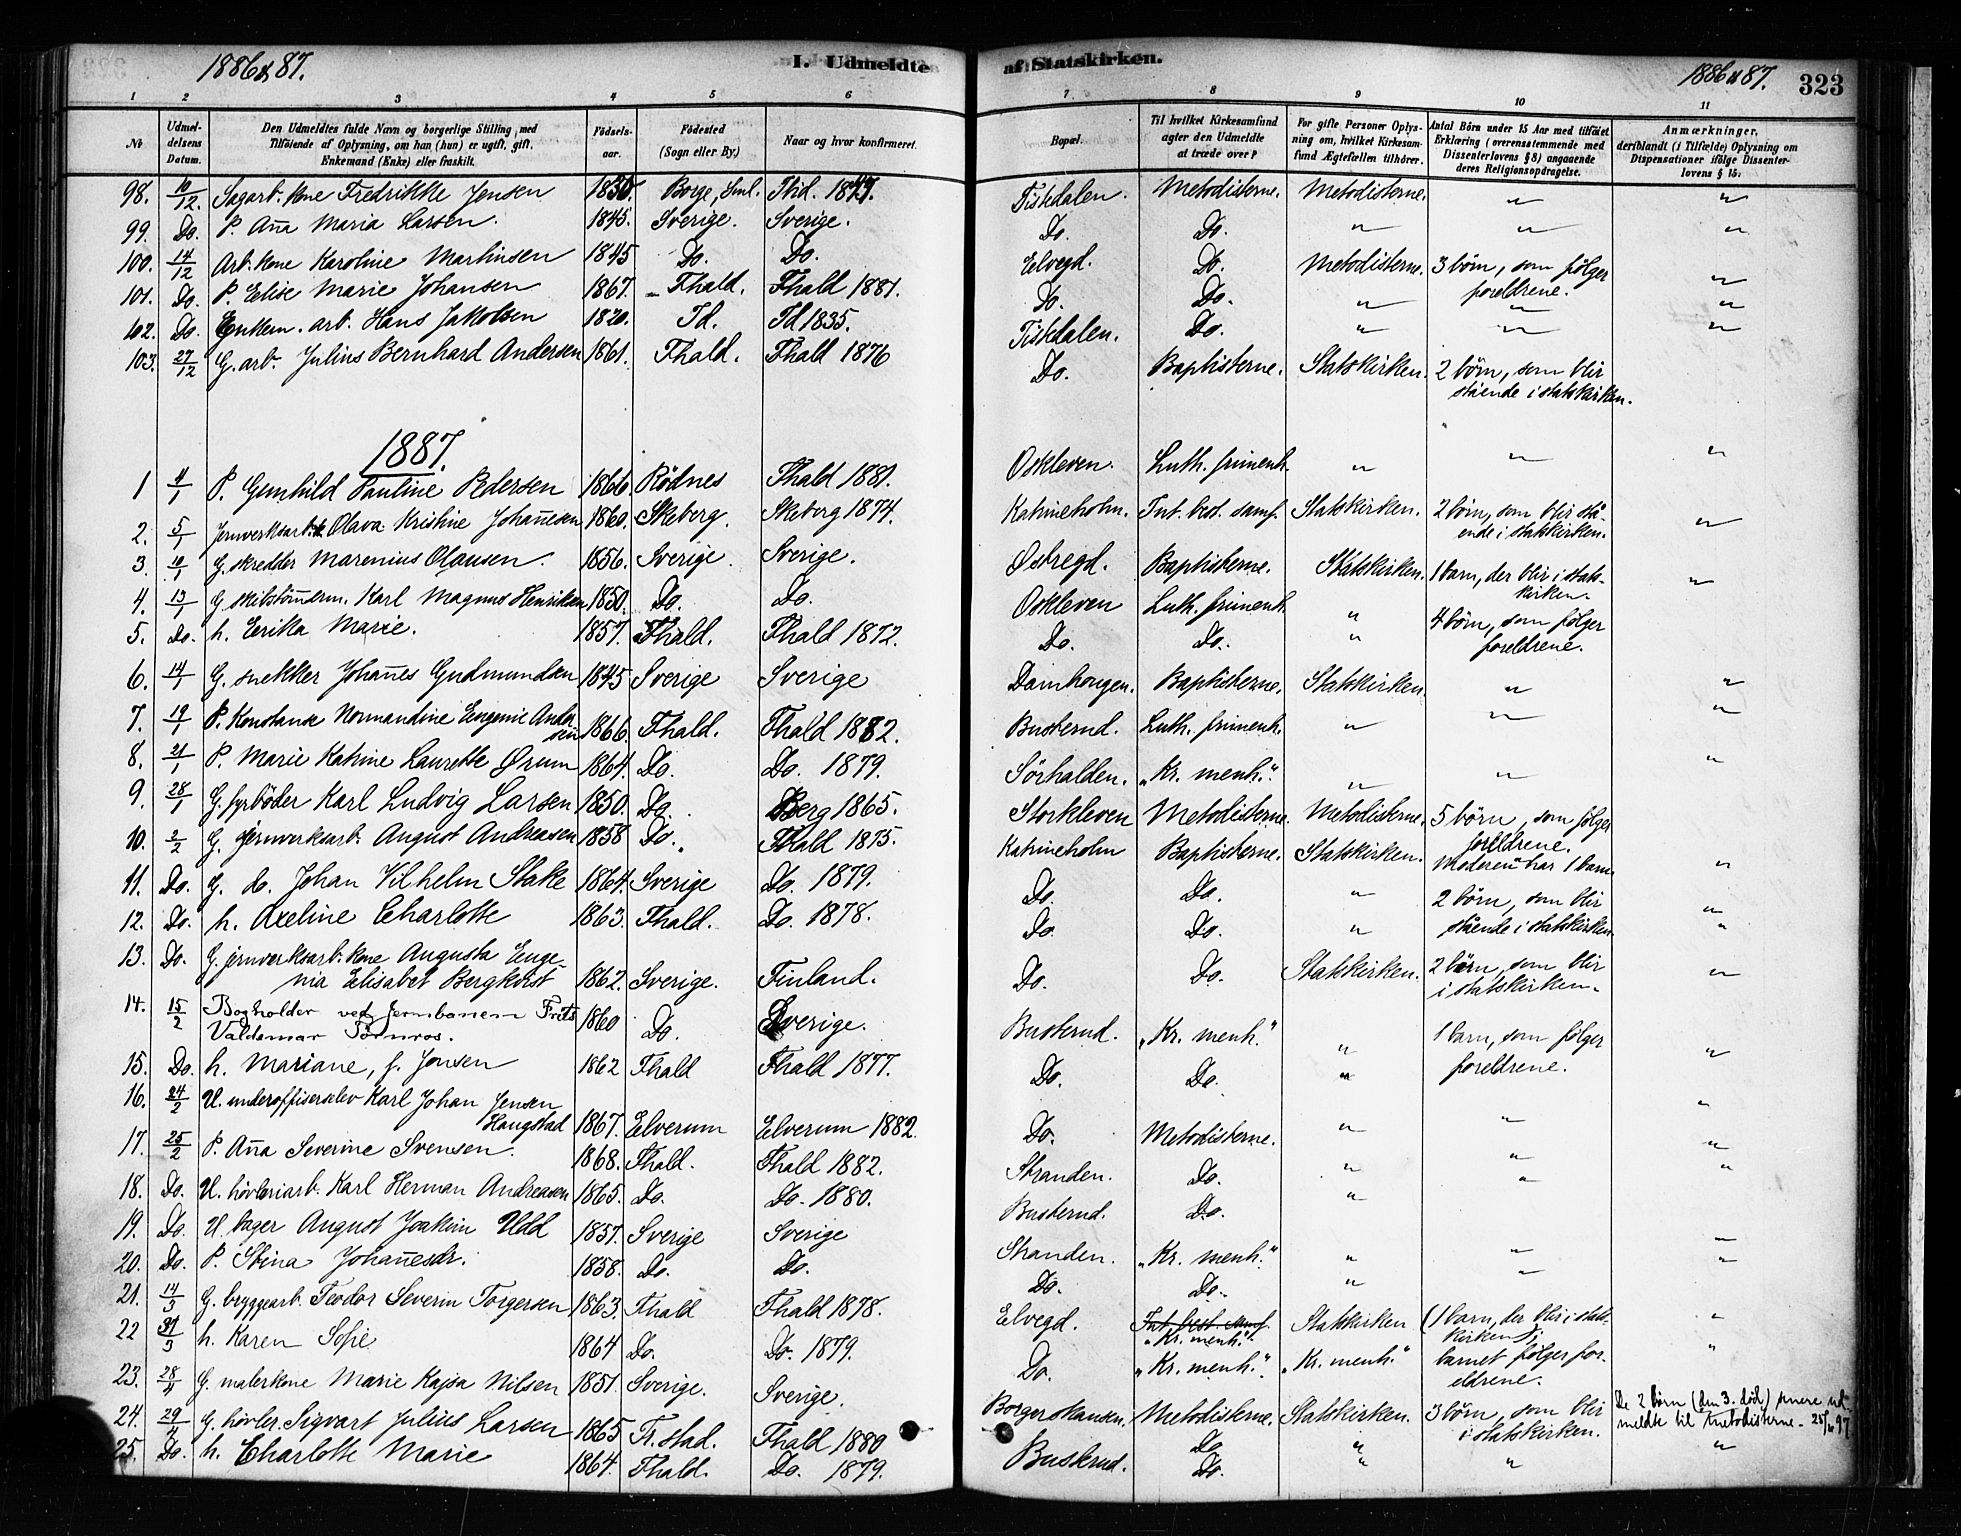 1886 & 87.
I. Udmeldte af Statskirken.
1886 & 87. 323
1 2 3 4 5 6 7 8 9 10 11
No
Udmeldelsens Datum.
Den Udmeldtes fulde Navn og borgerlige Stilling, med
Tilføiende af Oplysning, om han (hun) er ugift, gift,
Enkemand (Enke) eller fraskilt.
Fødselsaar.
Fødested
(Sogn eller By.)
Naar og hvor konfirmeret.
Bopæl.
Til hvilket Kirkesamfund
agter den Udmeldte
at træde over?
For gifte Personer Oplysning om, hvilket Kirkesamfund Ægtefællen tilhører.
Antal Børn under 15 Aar med tilføiet
Erklæring (overensstemmende med
Dissenterlovens § 8) angaaende
deres Religionsopdragelse.
Anmærkninger,
deriblandt (i Tilfælde) Oplysning om
Dispensationer ifølge Dissenterlovens § 15.
98. 10/12. Sagarb. kone Fredrikke Jensen 1830. Borge, Sml. Fhld. 1847. Tistedalen. Metodisterne. Metodisterne. " "
99. Do. P. Aña Maria Larsen. 1845. Sverige. Sverige. Do. Do. " " "
100. 14/12 Arb. kone Karoline Martinsen 1845 Do. Do. Elvegd. Do. Metodisterne. 3 börn, som følger foreldrene. "
101. Do. P. Elise Marie Johansen 1867. Fhald. Fhald 1881. Do. Do. " " "
102. Do. Enkem. arb. Hans Jakobsen 1820. Id. Id 1835. Tistedalen. Do. " " "
103. 27/12 G. arb. Julius Bernhard Andersen 1861. Fhald. Fhald 1876 Do. Baptisterne. Statskirken. 2 börn, som blir stående i statskirken.
1887.
1 4/1 P. Gunhild Pauline Pedersen 1866 Rödnes Fhald 1881. Oskleven. Luth. frimenh. " " "
2. 5/1 Jernverksarb. k. Olava Kristine Johañesen 1860. Skeberg. Skeberg 1874. Katrineholm. Int. best. samf. Statskirken. 2 börn, som blir stående i statskirken. "
3. 10/1 G. skredder Marenius Olausen. 1856. Sverige. Sverige. Østregd. Baptisterne. Statskirken. 1 barn, der blir i statskirken. "
4. 13/1 G. skibstömerm. Karl Magnus Henriksen 1850. Do. Do. Oskleven Luth. frimenh. " 4 börn, som følger
5. Do. h. Eerika Marie. 1857. Fhald. Fhald 1872. Do. Do. " foreldrene.
6. 14/1 G. snekker Johañes Gudmundsen 1845 Sverige Sverige Damhougen. Baptisterne. Statskirken. " "
7. 19/1 P. Konstanse Normandine Eugenie Andersen 1866. Fhald. Fhald 1882. Busterud. Luth. frimenh. " " "
8. 21/1 P. Marie Katrine Laurette Ørum 1864. Do. Do. 1879. Sörhalden. „Kr. menh." " " "
9. 28/1 G. fyrböder Karl Ludvig Larsen 1850. Do. Berg 1865. Storkleven Metodisterne. Metodisterne. 5 börn, som følger foreldrene.
10. 2/2 G. jernverksarb. August Andreasen 1858 Do. Fhald 1875. Katrineholm Baptisterne. Statskirken. Moderen har 1 barn "
11. Do. G. do. Johan Vilhelm Stake 1864. Sverige Do. 1879. Do. Do. " 2 börn, som blir "
12. Do. h. Axeline Charlotte 1863. Fhald. Do. 1878. Do. Do. " stående i statskirken "
13. Do. G. jernverksarb. kone Augusta Eugenia Elisabet Bergkvist 1862. Sverige. Finland. Do. Do. Statskirken. 2 börn, som blir i statskirken. "
14. 15/2 Bogholder ved jernbanen Frits Valdemar Törnros. 1860 Do. Sverige. Busterud. „Kr. menh." " 1 barn, som følger
15. Do. h. Mariane, f. Jensen 1862 Fhald Fhald 1877. Do. Do. " foreldrene. "
16. 24/2 U. underoffiserselev Karl Johan Jensen Haugstad 1867. Elverum Elverum 1882. Do. Metodisterne. " " "
17. 25/2 P. Aña Severine Svensen. 1868. Fhald. Fhald 1882. Stranden. Do. " " "
18. Do. U. høvleriarb. Karl Herman Andreasen 1865. Do. Do. 1880. Busterud. Do. " " "
19. Do. U. bager August Joakim Udd 1857. Sverige Sverige Stranden. „Kr. menh." " " "
20. Do. P. Stina Johañesdr. 1858. Do. Do. Do. Do. " " "
21. 14/3 G. bryggearb. Teodor Severin Torgersen 1863. Fhald Fhald 1878. Elvegd. Int. best. samf. „Kr. menh." Statskirken (1 barn, der blir i statskirken); "
22 31/3 h. Karen Sofie 1864 Do. Do. 1879. Do. „Kr. menh." „Kr. menh." barnet følger foreldrene. "
23. 28/4 G. malerkone Marie Kajsa Nilsen 1851. Sverige. Sverige. Borgerskansen. Metodisterne. Statskirken. 3 börn, som blir i statskirken. De 2 börn (den 3. död) senere udmeldte til metodisterne - 25/6 97
24. 29/4 G. høvler. Sigvart Julius Larsen 1865 Fr.stad. Fhald 1880 Busterud. Do " "
25. Do. h. Charlotte Marie 1864. Fhald. Do. 1879. Do. " "